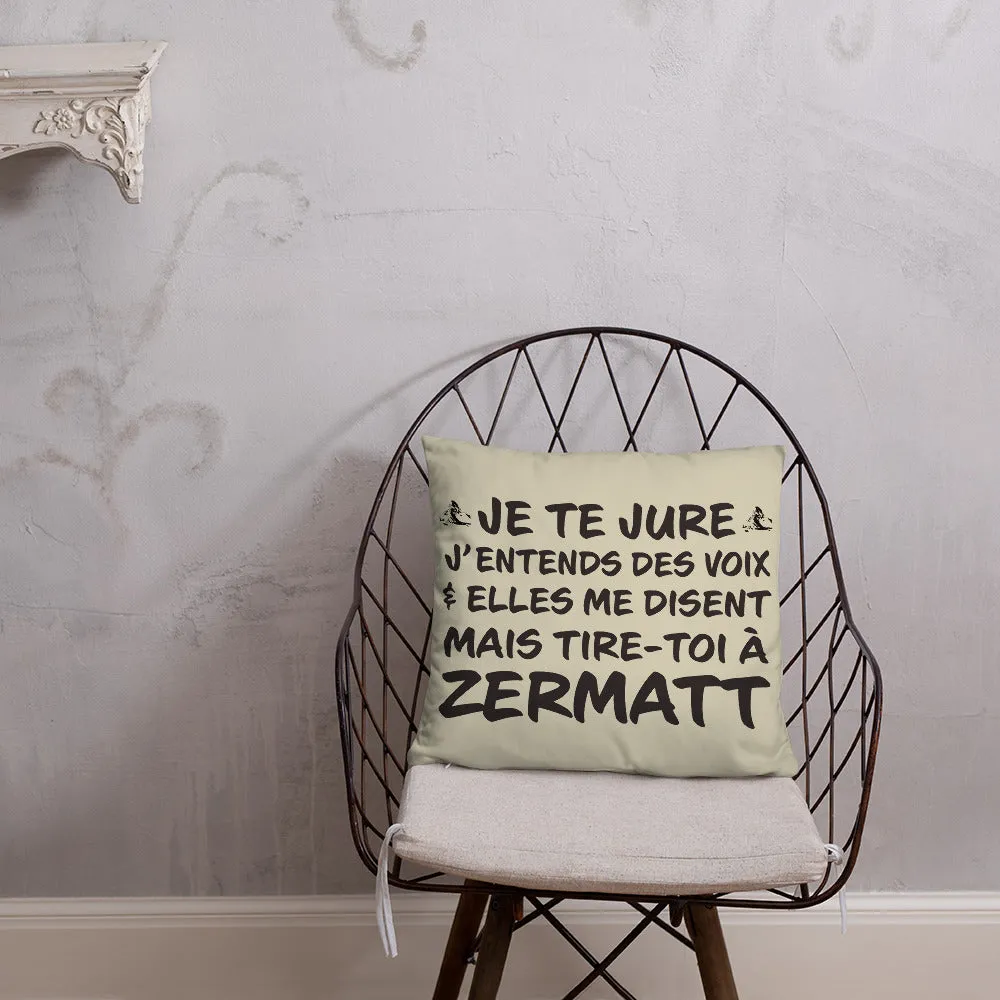 JE TE JURE
J'ENTENDS DES VOIX
& ELLES ME DISENT
MAIS TIRE-TOI À
ZERMATT